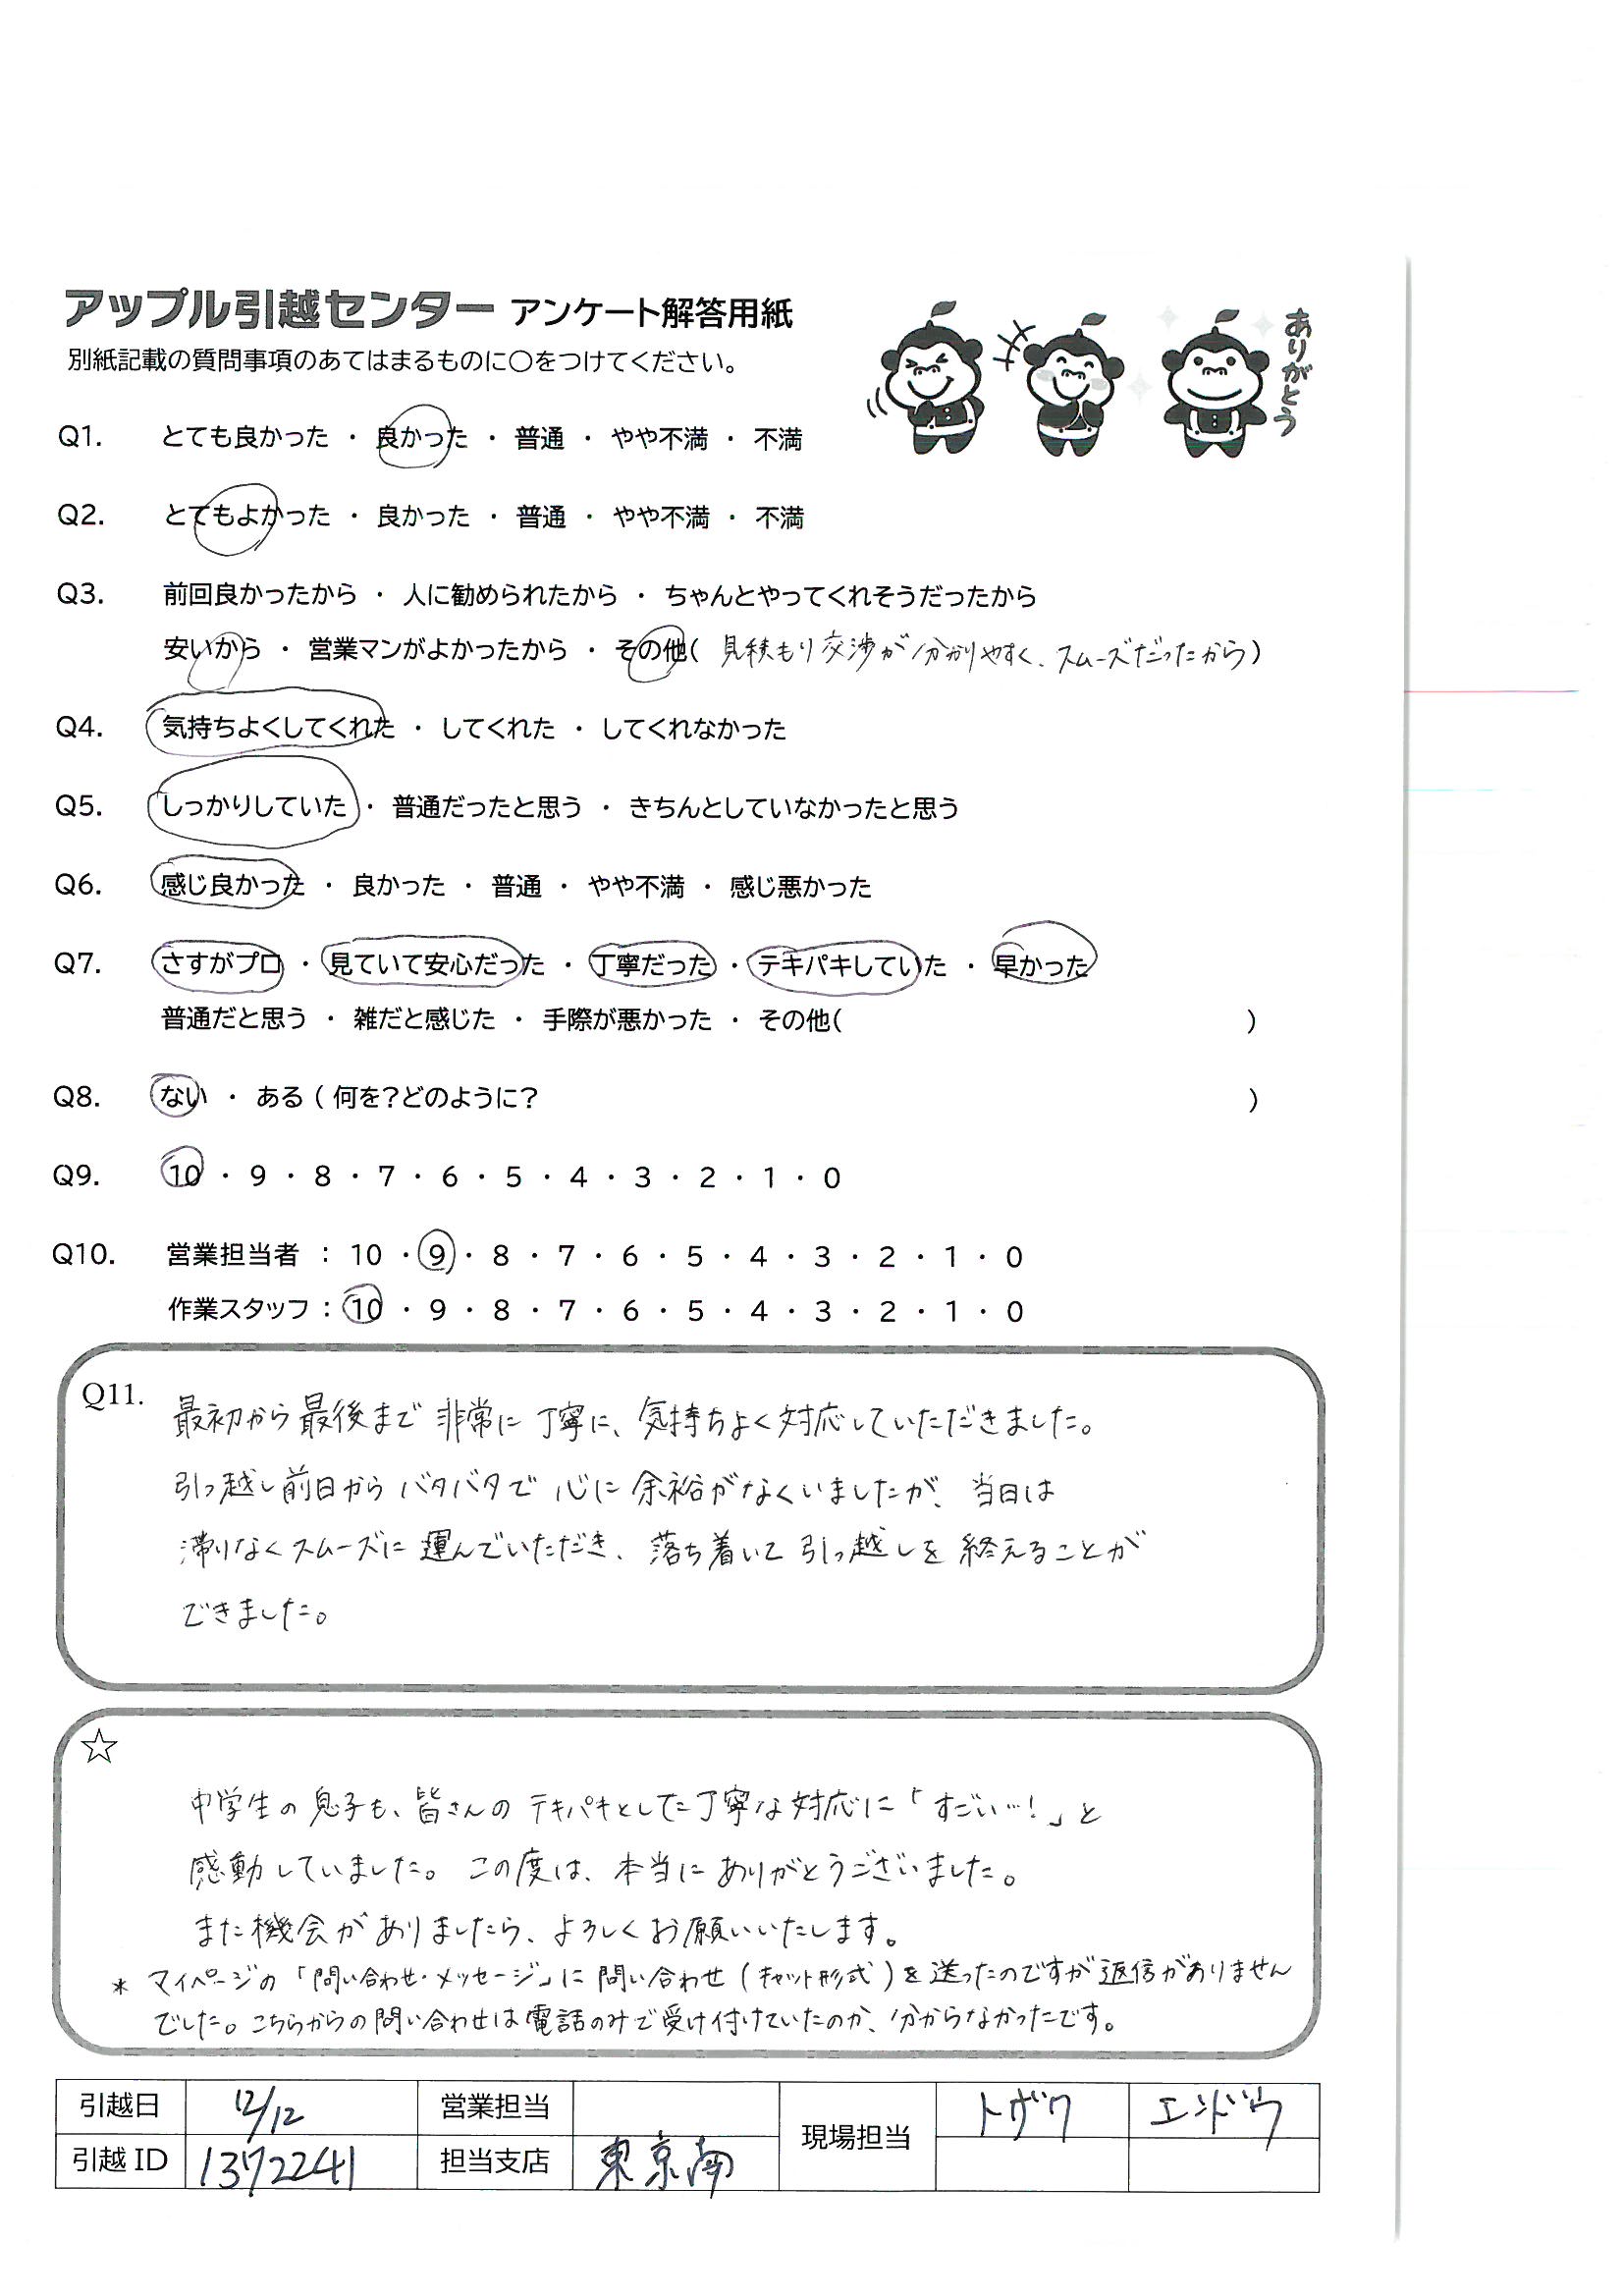 アップル引越センター アンケート解答用紙
別紙記載の質問事項のあてはまるものに○をつけてください。
ありがとう
Q1. とても良かった ・ 良かった ・ 普通 ・ やや不満 ・ 不満
Q2. とてもよかった ・ 良かった ・ 普通 ・ やや不満 ・ 不満
Q3. 前回良かったから ・ 人に勧められたから ・ ちゃんとやってくれそうだったから
安いから ・ 営業マンがよかったから ・ その他( 見積もり交渉が分かりやすく、スムーズだったから)
Q4. 気持ちよくしてくれた ・ してくれた ・ してくれなかった
Q5. しっかりしていた ・ 普通だったと思う ・ きちんとしていなかったと思う
Q6. 感じ良かった ・ 良かった ・ 普通 ・ やや不満 ・ 感じ悪かった
Q7. さすがプロ ・ 見ていて安心だった ・ 丁寧だった ・ テキパキしていた ・ 早かった
普通だと思う ・ 雑だと感じた ・ 手際が悪かった ・ その他( )
Q8. ない ・ ある ( 何を?どのように? )
Q9. 10 ・ 9 ・ 8 ・ 7 ・ 6 ・ 5 ・ 4 ・ 3 ・ 2 ・ 1 ・ 0
Q10. 営業担当者 : 10 ・ 9 ・ 8 ・ 7 ・ 6 ・ 5 ・ 4 ・ 3 ・ 2 ・ 1 ・ 0
作業スタッフ : 10 ・ 9 ・ 8 ・ 7 ・ 6 ・ 5 ・ 4 ・ 3 ・ 2 ・ 1 ・ 0
Q11. 最初から最後まで非常に丁寧に、気持ちよく対応していただきました。
引っ越し前日からバタバタで心に余裕がなくいましたが、当日は
滞りなくスムーズに運んでいただき、落ち着いて引っ越しを終えることが
できました。
☆
中学生の息子も、皆さんのテキパキとした丁寧な対応に「すごい…!」と
感動していました。この度は、本当にありがとうございました。
また機会がありましたら、よろしくお願いいたします。
* マイページの「問い合わせ・メッセージ」に問い合わせ(チャット形式)を送ったのですが返信がありません
でした。こちらからの問い合わせは電話のみで受け付けていたのか、分からなかったです。
引越日 12/12 営業担当 現場担当 トザワ エンドウ
引越ID 1372241 担当支店 東京南